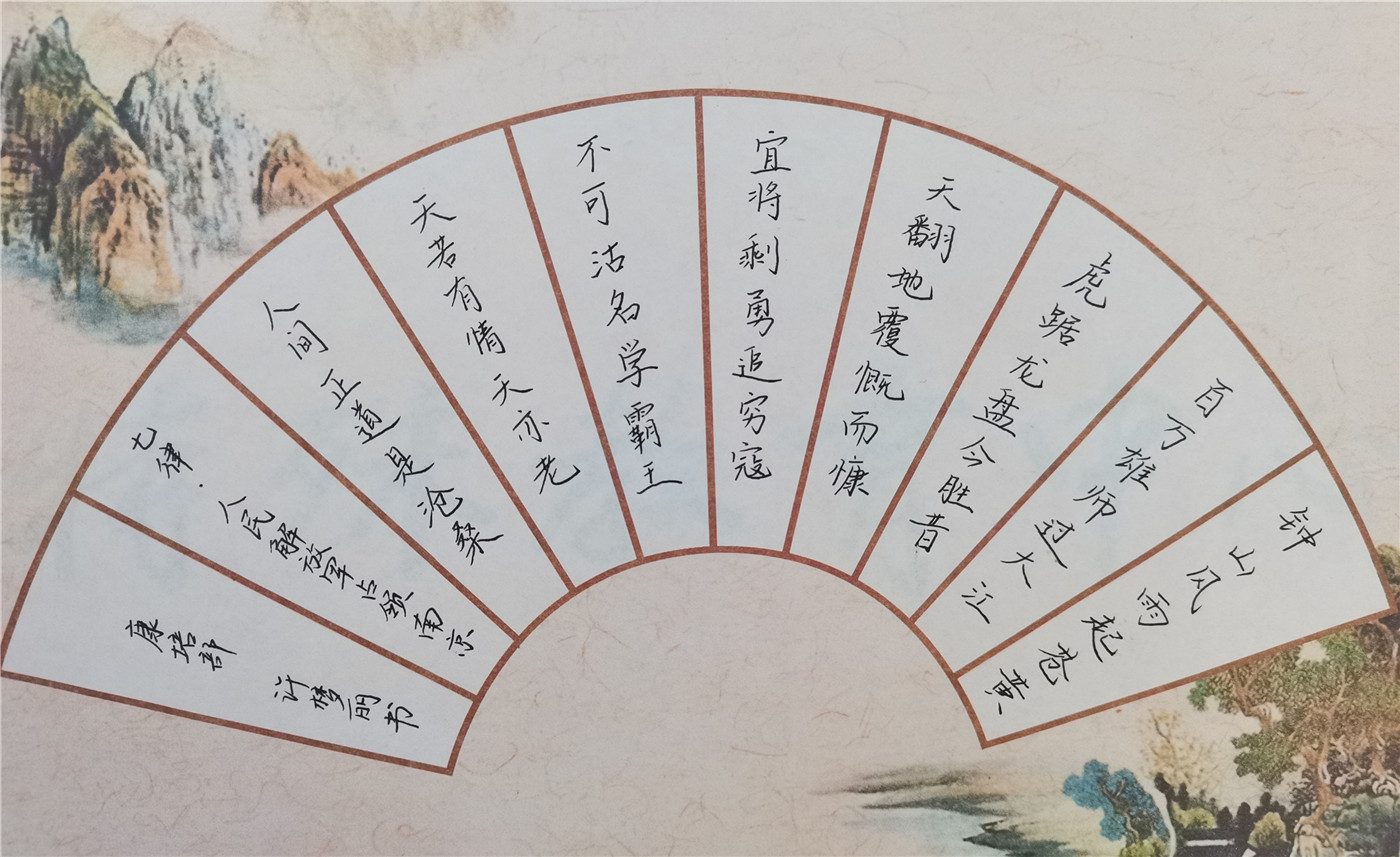 钟山风雨起苍黄
百万雄师过大江
虎踞龙盘今胜昔
天翻地覆慨而慷
宜将剩勇追穷寇
不可沽名学霸王
天若有情天亦老
人间正道是沧桑
七律·人民解放军占领南京
康培部 许梦丽书